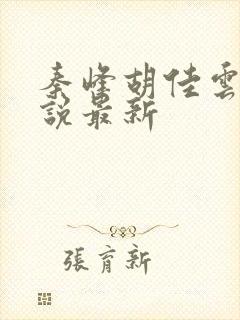 秦峰胡佳雲
說最新
張育新